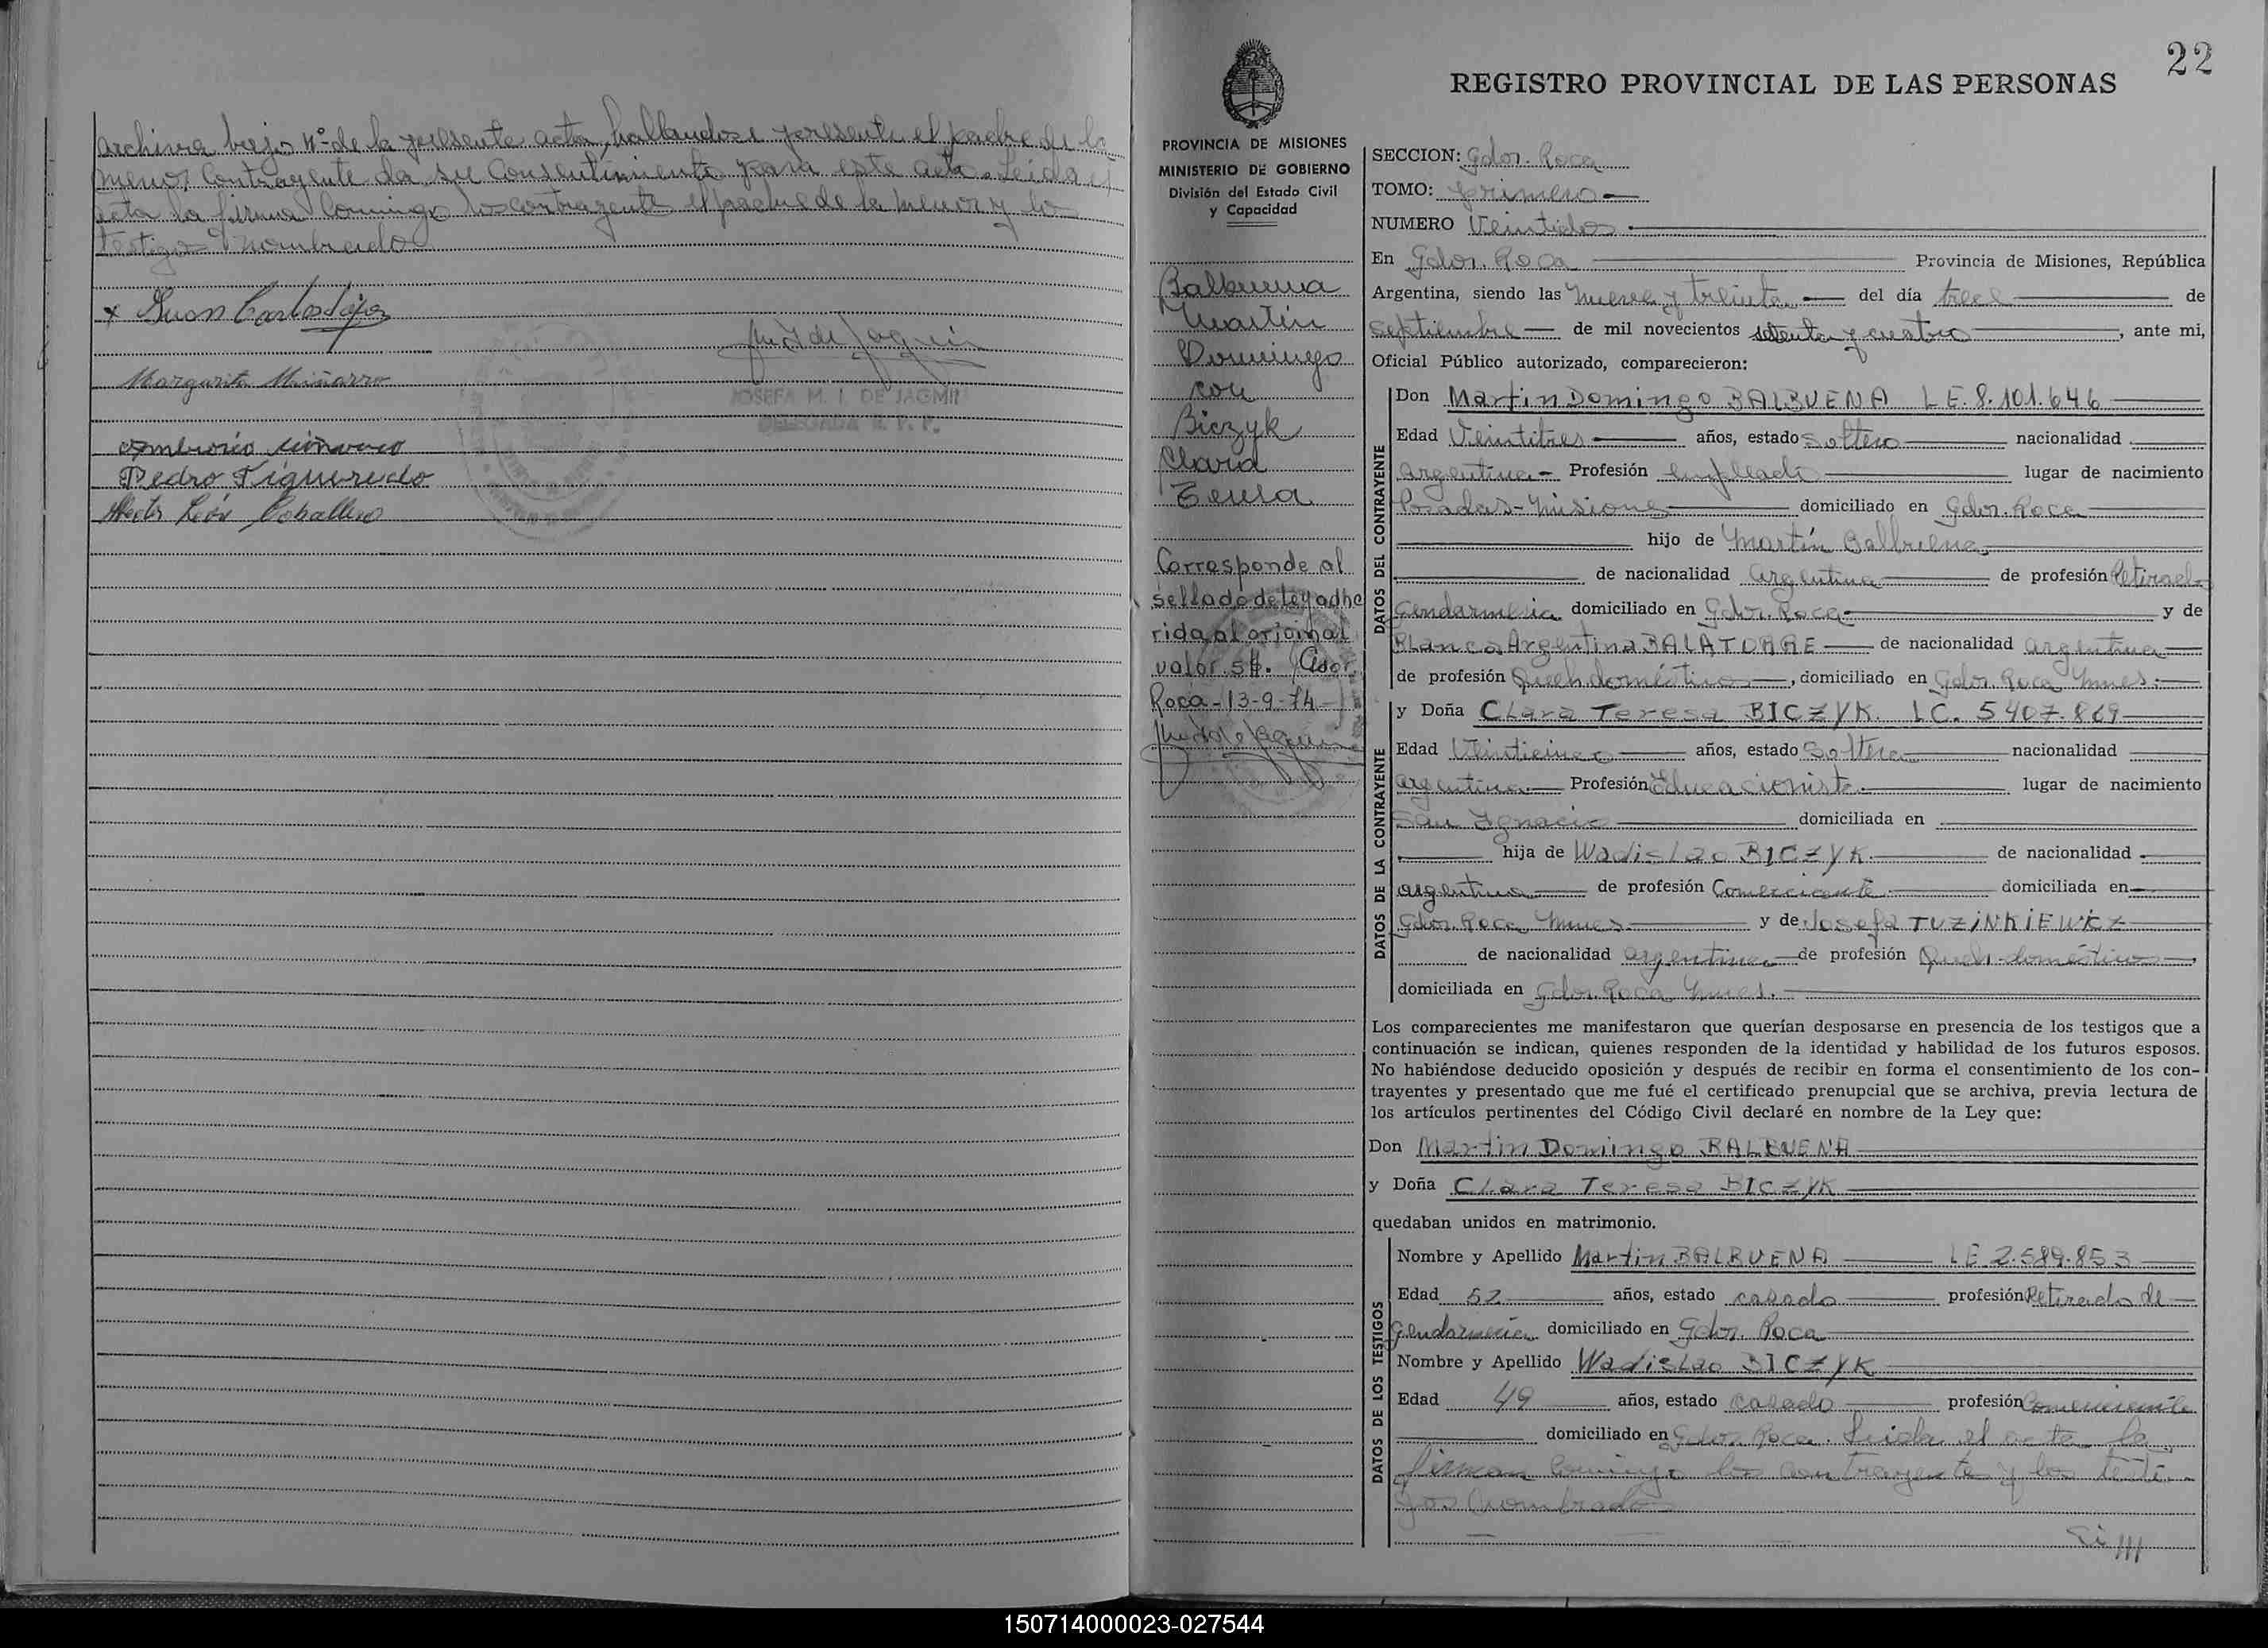 archiva bajo Nº de la presente acta, hallandose presente el padre de la
menor contrayente da su consentimiento para este acto. Leida el
acta la firman conmigo los contrayente el padre de la menor y lo
testigo nombrado
x Juan Carlos
Margarita Miñarro
JOSEFA M. I. DE JAGMIN
DELEGADA R. P. P.
Pedro Figueredo
Hector León Caballero
22
REGISTRO PROVINCIAL DE LAS PERSONAS
PROVINCIA DE MISIONES
MINISTERIO DE GOBIERNO
División del Estado Civil
y Capacidad
Balbuena
Martín
Domingo
con
Biczyk
Clara
Teresa
Corresponde al
sellado de ley adhe
rida al original
valor 5$. Gdor.
Roca - 13-9-74
SECCION: Gdor. Roca
TOMO: primero
NUMERO Veintidos
En Gdor. Roca Provincia de Misiones, República
Argentina, siendo las nueve y treinta del día trece de
septiembre de mil novecientos setenta y cuatro, ante mi,
Oficial Público autorizado, comparecieron:
DATOS DEL CONTRAYENTE
Don Martin Domingo BALBUENA LE. 8.101.646
Edad Veintitres años, estado soltero nacionalidad
argentina Profesión empleado lugar de nacimiento
Posadas - Misiones domiciliado en Gdor. Roca
hijo de Martín Balbuena
de nacionalidad argentina de profesión Retirado
Gendarmeria domiciliado en Gdor. Roca y de
Blanca Argentina BALATORRE de nacionalidad argentina
de profesión Queh. domésticos, domiciliado en Gdor. Roca Mnes.
DATOS DE LA CONTRAYENTE
y Doña Clara Teresa BICZYK. LC. 5407.869
Edad Veinticinco años, estado Soltera nacionalidad
argentina Profesión Educacionista lugar de nacimiento
San Ignacio domiciliada en
hija de Wadislao BICZYK de nacionalidad
argentina de profesión Comerciante domiciliada en
Gdor. Roca Mnes y de Josefa TUZINKIEWICZ
de nacionalidad argentina de profesión Queh. domésticos
domiciliada en Gdor. Roca Mnes.
Los comparecientes me manifestaron que querían desposarse en presencia de los testigos que a
continuación se indican, quienes responden de la identidad y habilidad de los futuros esposos.
No habiéndose deducido oposición y después de recibir en forma el consentimiento de los con-
trayentes y presentado que me fué el certificado prenupcial que se archiva, previa lectura de
los artículos pertinentes del Código Civil declaré en nombre de la Ley que:
Don Martin Domingo BALBUENA
y Doña Clara Teresa BICZYK
quedaban unidos en matrimonio.
DATOS DE LOS TESTIGOS
Nombre y Apellido Martin BALBUENA LE 2.589.853
Edad 52 años, estado casado profesión Retirado de
gendarmeria domiciliado en Gdor. Roca
Nombre y Apellido Wadislao BICZYK
Edad 49 años, estado casado profesión Comerciante
domiciliado en Gdor. Roca. Leida el acta la
firman conmigo los contrayente y los testi-
gos nombrado
150714000023-027544